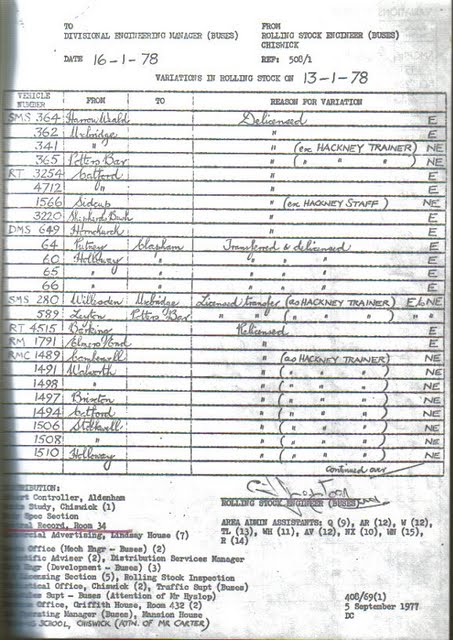 TO FROM
DIVISIONAL ENGINEERING MANAGER (BUSES) ROLLING STOCK ENGINEER (BUSES)
CHISWICK
DATE 16-1-78 REF: 508/1
VARIATIONS IN ROLLING STOCK ON 13-1-78
VEHICLE NUMBER FROM TO REASON FOR VARIATION
SMS 364 Harrow Weald Delicensed E
362 Uxbridge " E
341 " " (ex HACKNEY TRAINER) NE
365 Potters Bar " ( " " ) NE
RT 3254 Catford " E
4712 " " E
1566 Sidcup " (ex HACKNEY STAFF) NE
3220 Shepherds Bush " E
DMS 649 Hornchurch " E
64 Putney Clapham Transferred & delicensed E
60 Holloway " " " " E
65 " " " " " E
66 " " " " " E
SMS 280 Willesden Uxbridge Licensed transfer (as HACKNEY TRAINER) E to NE
589 Leyton Potters Bar " " ( " " ) " "
RT 4515 Barking Relicensed E
RM 1791 Elmers End " E
RMC 1489 Camberwell " (as HACKNEY TRAINER) NE
1491 Walworth " ( " " " ) NE
1498 " " ( " " " ) NE
1497 Brixton " ( " " " ) NE
1494 Catford " ( " " " ) NE
1506 Stockwell " ( " " " ) NE
1508 " " ( " " " ) NE
1510 Holloway " ( " " " ) NE
Continued over
TRIBUTION:
Controller, Aldenham
Study, Chiswick (1)
Spec Section
Record, Room 34
ercial Advertising, Lindsay House (7)
Office (Mech Engr - Buses) (2)
tific Adviser (2), Distribution Services Manager
Engr (Development - Buses) (3)
icensing Section (5), Rolling Stock Inspection
ical Office, Chiswick (2), Traffic Supt (Buses)
les Supt - Buses (Attention of Mr Ryslop)
Office, Griffith House, Room 432 (2)
perating Manager (Buses), Mansion House
SCHOOL, CHISWICK (ATTN. OF MR CARTER)
ROLLING STOCK ENGINEER (BUSES)
AREA ADMIN ASSISTANTS: Q (9), AR (12), W (12),
TL (13), WH (11), AV (12), NX (10), WN (15),
R (14)
408/69(1)
5 September 1977
DC